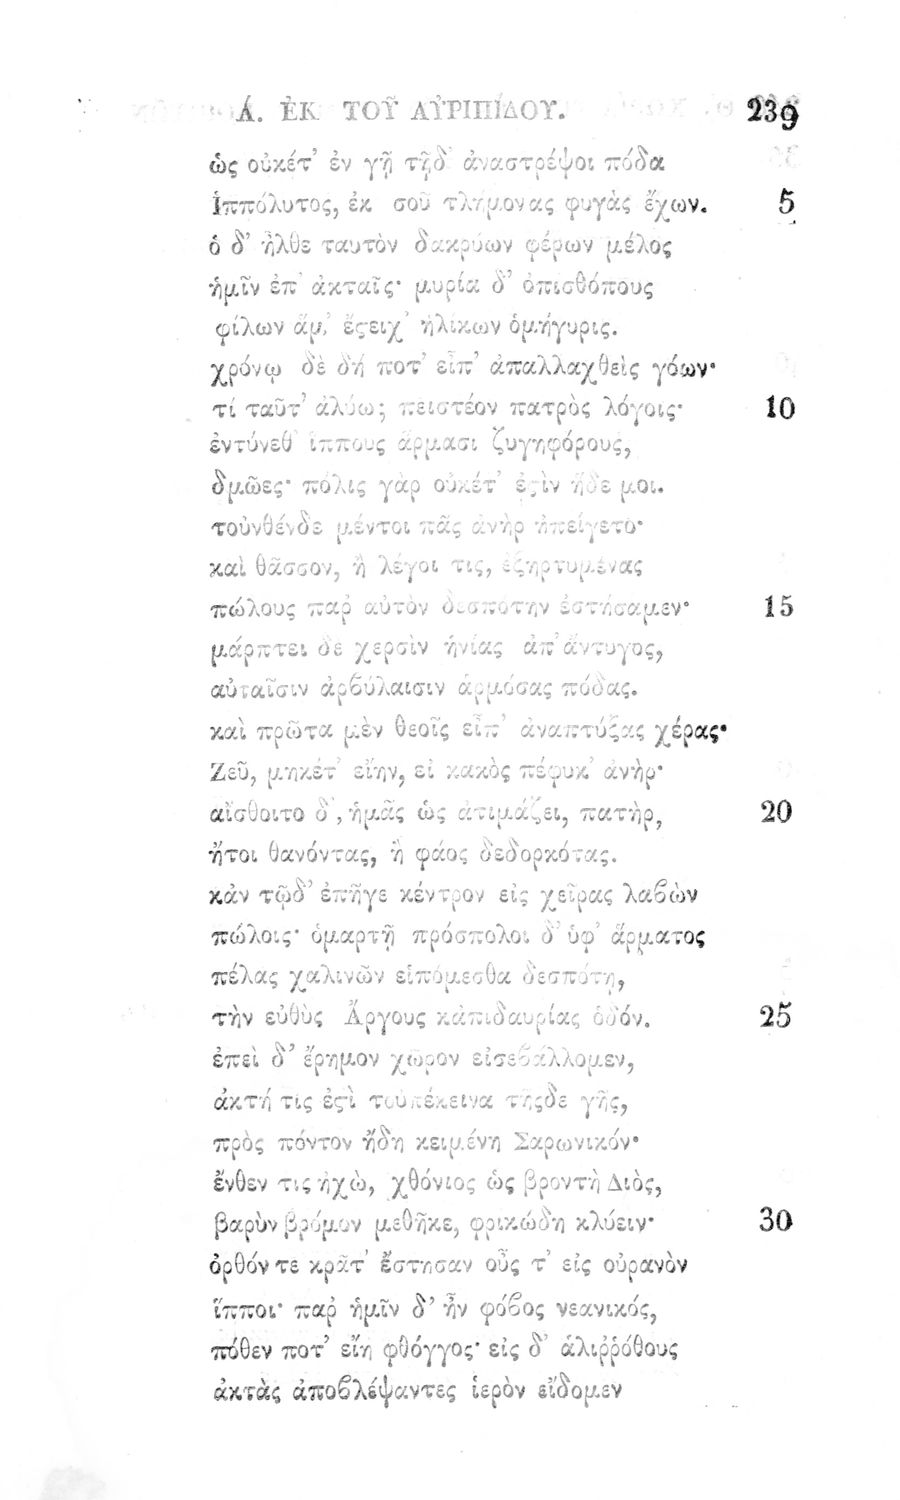 Ά. ἘΚ ΤΟΥ͂ ΑΥ̓ΡΙΠΊΔΟΥ. 239
ὡς οὐκέτ’ ἐν γῇ τῇδ’ ἀναστρέψοι πόδα
Ἱππόλυτος, ἐκ σοῦ τλήμονας φυγὰς ἔχων. 5
ὁ δ’ ἦλθε ταυτὸν δακρύων φέρων μέλος
ἡμῖν ἐπ’ ἀκταῖς· μυρία δ’ ὀπισθόπους
φίλων ἅμ’ ἔϛειχ’ ἡλίκων ὁμήγυρις.
χρόνῳ δὲ δή ποτ’ εἶπ’ ἀπαλλαχθεὶς γόων·
τί ταῦτ’ ἀλύω; πειστέον πατρὸς λόγοις· 10
ἐντύνεθ’ ἵππους ἅρμασι ζυγηφόρους,
δμῶες· πόλις γὰρ οὐκέτ’ ἐϛὶν ἥδε μοι.
τοὐνθένδε μέντοι πᾶς ἀνὴρ ἠπείγετο·
καὶ θᾶσσον, ἢ λέγοι τις, ἐξηρτυμένας
πώλους παρ’ αὐτὸν δεσπότην ἐστήσαμεν· 15
μάρπτει δὲ χερσὶν ἡνίας ἀπ’ ἄντυγος,
αὐταῖσιν ἀρϐύλαισιν ἁρμόσας πόδας.
καὶ πρῶτα μὲν θεοῖς εἶπ’ ἀναπτύξας χέρας·
Ζεῦ, μηκέτ’ εἴην, εἰ κακὸς πέφυκ’ ἀνὴρ·
αἴσθοιτο δ’, ἡμᾶς ὡς ἀτιμάζει, πατὴρ, 20
ἤτοι θανόντας, ἢ φάος δεδορκότας.
κἀν τῷδ’ ἐπῆγε κέντρον εἰς χεῖρας λαϐὼν
πώλοις· ὁμαρτῆ πρόσπολοι δ’ ὑφ’ ἅρματος
πέλας χαλινῶν εἱπόμεσθα δεσπότῃ,
τὴν εὐθὺς Ἄργους κἀπιδαυρίας ὁδόν. 25
ἐπεὶ δ’ ἔρημον χῶρον εἰσεϐάλλομεν,
ἀκτή τις ἐϛὶ τοὐπέκεινα τῆςδε γῆς,
πρὸς πόντον ἤδη κειμένη Σαρωνικόν·
ἔνθεν τις ἠχὼ, χθόνιος ὡς βροντὴ Διὸς,
βαρὺν βρόμον μεθῆκε, φρικώδη κλύειν· 30
ὀρθόν τε κρᾶτ’ ἔστησαν οὖς τ’ εἰς οὐρανὸν
ἵπποι· παρ’ ἡμῖν δ’ ἦν φόϐος νεανικός,
πόθεν ποτ’ εἴη φθόγγος· εἰς δ’ ἁλιῤῥόθους
ἀκτὰς ἀποϐλέψαντες ἱερὸν εἴδομεν